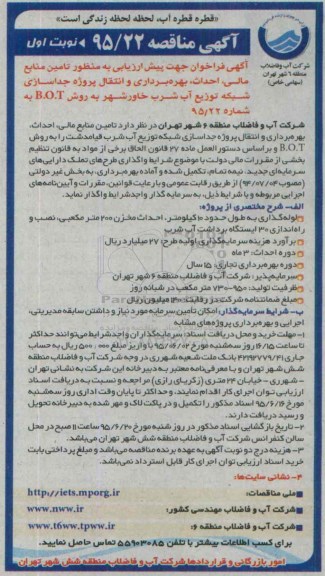 «قطره قطره آب، لحظه لحظه زندگی است»
آگهی مناقصه ۹۵/۲۲ نوبت اول
شرکت آب و فاضلاب
منطقه ۶ شهر تهران
(سهامی خاص)
آگهی فراخوان جهت پیش ارزیابی به منظور تامین منابع
مالی، احداث، بهره‌برداری و انتقال پروژه جداسازی
شبکه توزیع آب شرب خاورشهر به روش B.O.T به
شماره ۹۵/۲۲
شرکت آب و فاضلاب منطقه ۶ شهر تهران در نظر دارد تامین منابع مالی، احداث،
بهره‌برداری و انتقال پروژه جداسازی شبکه توزیع آب شرب قیامدشت را به روش
B.O.T و براساس دستورالعمل ماده ۲۷ قانون الحاق برخی از مواد به قانون تنظیم
بخشی از مقررات مالی دولت با موضوع شرایط واگذاری طرح‌های تملک دارایی‌های
سرمایه‌ای جدید، نیمه تمام، تکمیل شده و آماده بهره‌برداری، به بخش غیر دولتی
(مصوب ۹۴/۰۷/۰۴) از طریق رقابت عمومی و با رعایت قوانین، مقررات و آیین‌نامه‌های
اجرایی مربوطه و با شرایط ذیل، به سرمایه گذار واجد شرایط واگذار نماید.
الف- شرح مختصری از پروژه:
لوله‌گذاری به طول حدود ۱۰ کیلومتر، احداث مخزن ۲۰۰ متر مکعبی، نصب و
راه‌اندازی ۳۰ ایستگاه برداشت آب شرب
برآورد هزینه سرمایه‌گذاری اولیه طرح: ۲۷ میلیارد ریال
دوره احداث: ۳ ماه
دوره بهره‌برداری تجاری: ۱۵ سال
سرمایه‌پذیر: شرکت آب و فاضلاب منطقه ۶ شهر تهران
ظرفیت تولید: ۹۵۰-۷۳۰ متر مکعب در شبانه روز
مبلغ ضمانتنامه شرکت در رقابت: میلیون ریال
ب- شرایط سرمایه‌گذار: امکان تأمین سرمایه مورد نیاز و داشتن سابقه مدیریتی،
اجرایی و بهره‌برداری پروژه‌های مشابه
۱- مهلت خرید و محل دریافت اسناد: سرمایه‌گذاران واجد شرایط می‌توانند حداکثر
تا ساعت ۱۶/۱۵ روز سه‌شنبه مورخ ۹۵/۰۶/۰۲ با واریز مبلغ ریال به حساب
جاری بانک ملت شعبه شهرری در وجه شرکت آب و فاضلاب منطقه
شش شهر تهران و با معرفی‌نامه معتبر به دبیرخانه این شرکت به نشانی تهران
- شهرری - خیابان ۲۴ متری (زکریای رازی) مراجعه و نسبت به دریافت اسناد
ارزیابی توان اجرای کار اقدام نمایند، و حداکثر تا پایان وقت اداری روز سه‌شنبه
مورخ ۹۵/۶/۱۶ اسناد مذکور را تکمیل و در پاکت لاک و مهر شده به دبیرخانه تحویل
و رسید دریافت دارند.
۲- تاریخ بازگشایی اسناد مذکور در روز شنبه مورخ ۹۵/۶/۲۰ ساعت ۱۱ صبح در محل
سالن کنفرانس شرکت آب و فاضلاب منطقه شش شهر تهران می‌باشد.
۳- هزینه درج دو نوبت آگهی به عهده برنده مناقصه می‌باشد و مبلغ پرداختی بابت
خرید اسناد ارزیابی توان اجرای کار قابل استرداد نمی‌باشد.
۴- نشانی سایت‌ها:
ملی مناقصات: http://iets.mporg.ir
شرکت آب و فاضلاب مهندسی کشور: www.nww.ir
شرکت آب و فاضلاب منطقه ۶: www.t6ww.tpww.ir
برای کسب اطلاعات بیشتر با تلفن ۵۵۹۰۳۰۸۵ تماس حاصل نمایید.
امور بازرگانی و قراردادها شرکت آب و فاضلاب منطقه شش شهر تهران